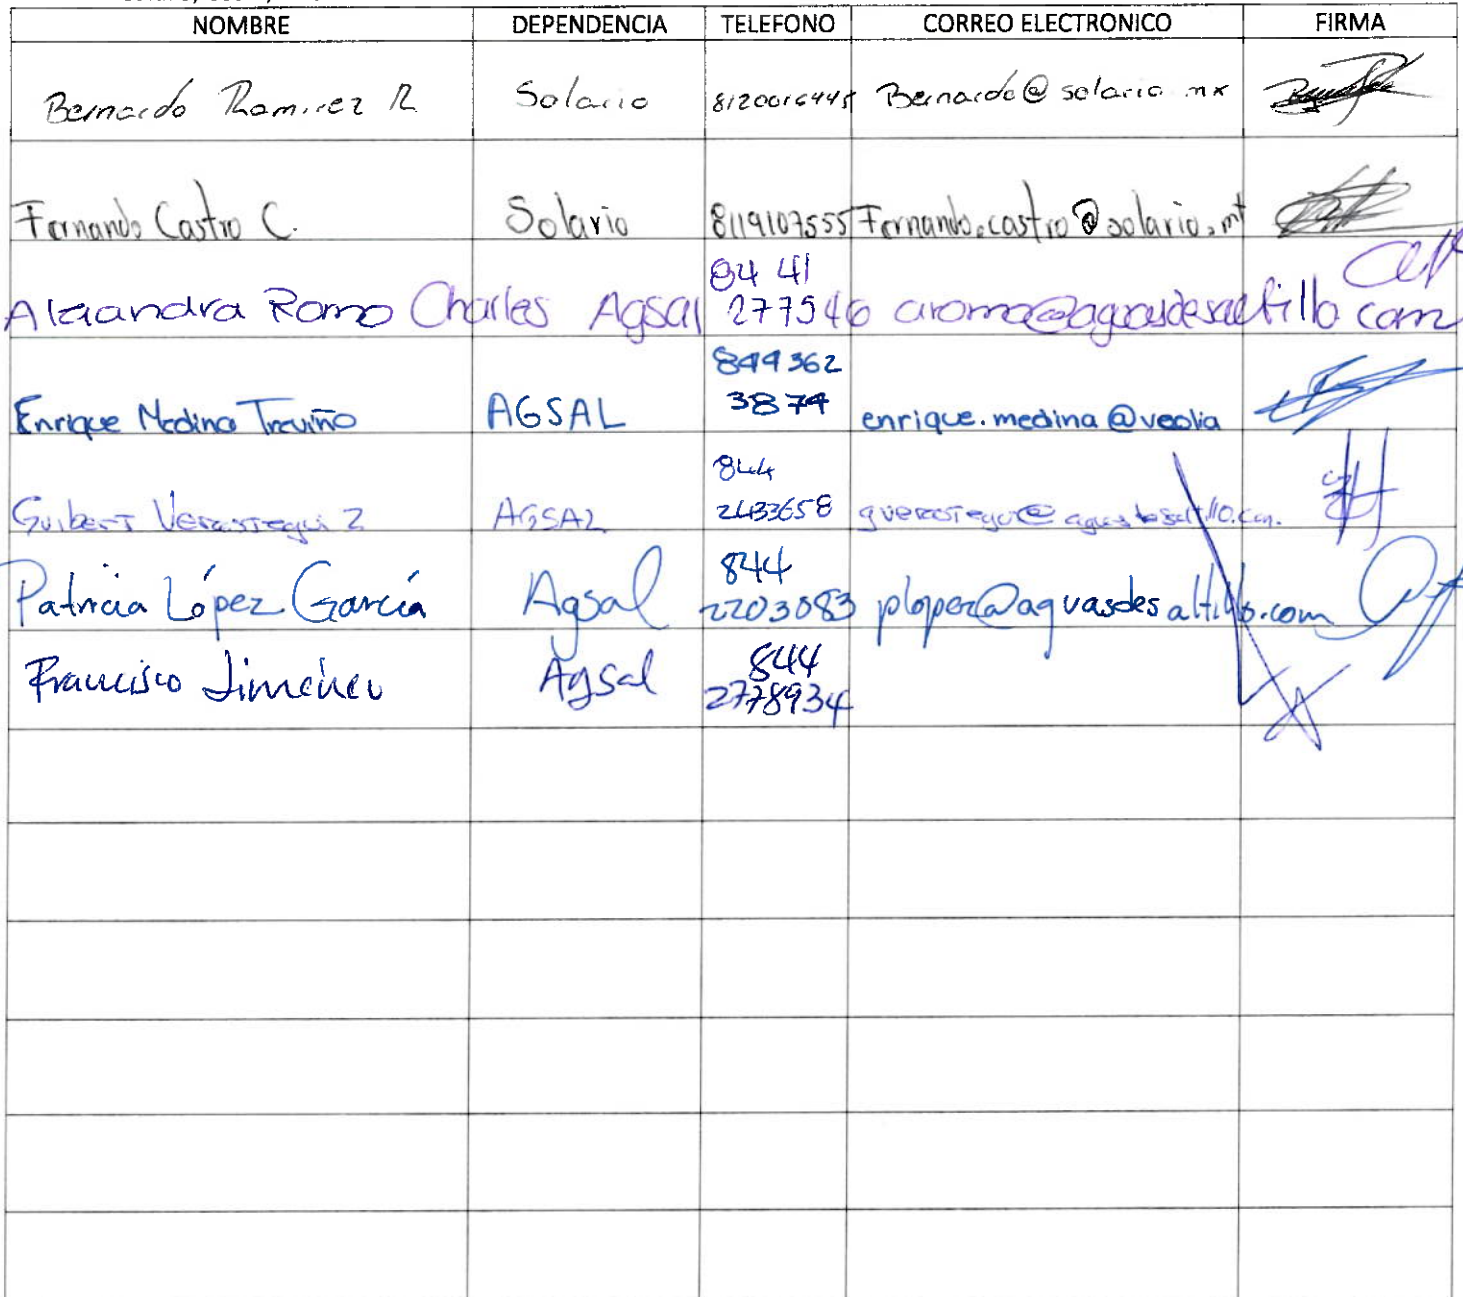 NOMBRE DEPENDENCIA TELEFONO CORREO ELECTRONICO FIRMA
Bernardo Ramirez R Solario 8120016445 Bernardo@solario.mx
Fernando Castro C. Solario 8119107555 Fernando.castro@solario.mx
84 41
Alejandra Romo Charles Agsal 277546 aromo@aguasdesaltillo com
844362
Enrique Medina Treviño AGSAL 3874 enrique.medina@veolia
844
Guibert Verastegui Z AGSAL 2433658 gverastegui@aguasdesaltillo.com.
844
Patricia López García Agsal 2203083 plopez@aguasdesaltillo.com
844
Francisco Jimenez Agsal 2778934